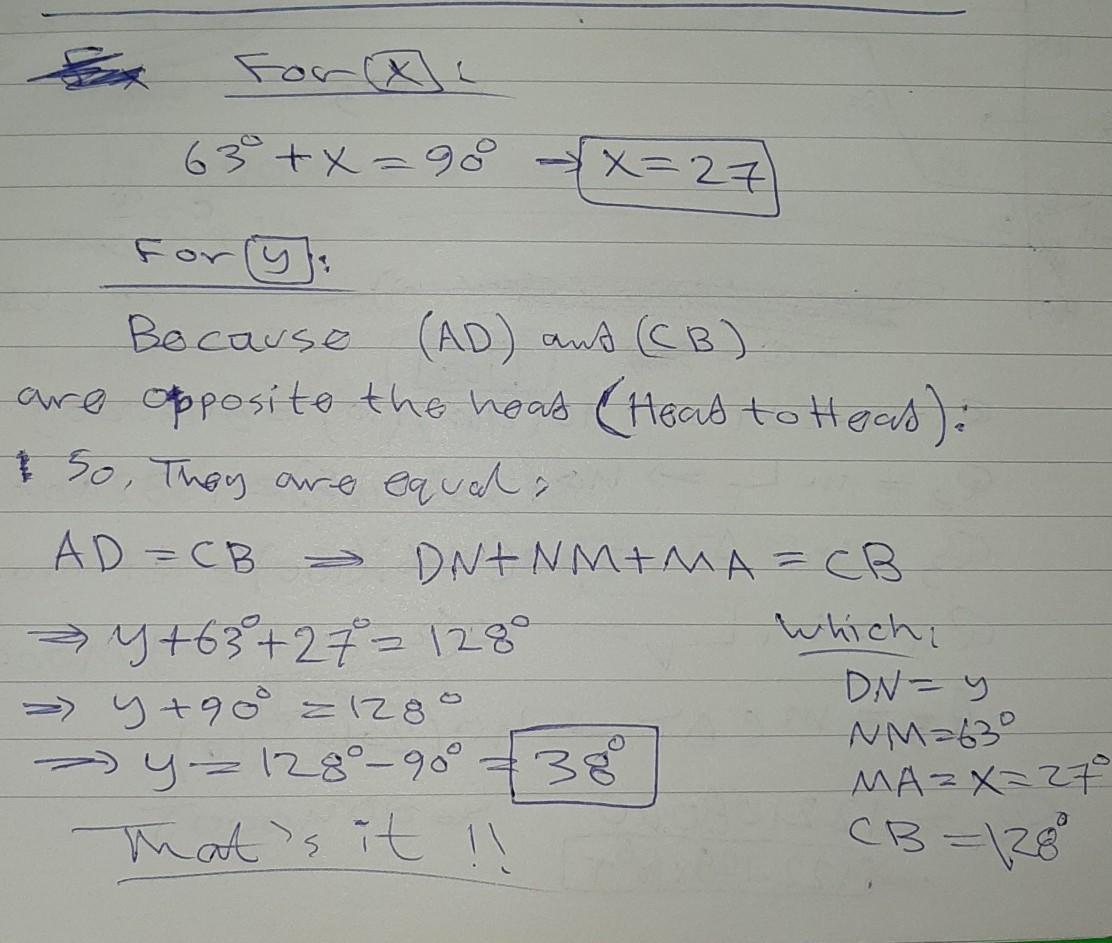 For (x):
63° + x = 90° → x = 27
For (y):
Because (AD) and (CB)
are opposite the head (Head to Head):
So, They are equal:
AD = CB ⇒ DN + NM + MA = CB
⇒ y + 63° + 27° = 128°
⇒ y + 90° = 128°
⇒ y = 128° - 90° = 38°
That's it !!
Which:
DN = y
NM = 63°
MA = x = 27°
CB = 128°